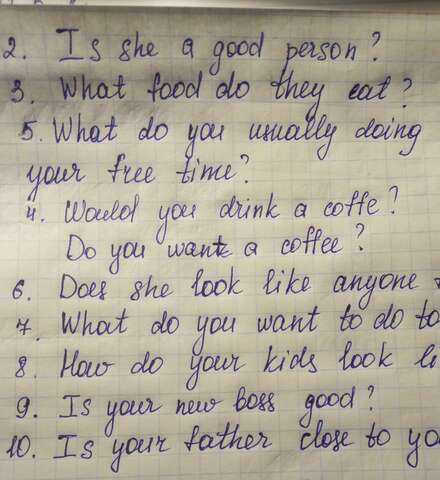 2. Is she a good person?
3. What food do they eat?
5. What do you usually doing
your free time?
4. Would you drink a coffe?
Do you want a coffee?
6. Does she look like anyone
7. What do you want to do to
8. How do your kids look li
9. Is your new boss good?
10. Is your father close to yo